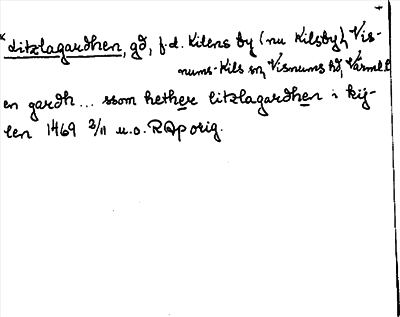 * Litzlagardhen, gd, f.d. Kilens by (nu Kilsby), Vis-
nums-Kils sn, Visnums hd, Värml l
en gardh ... ssom hether litzlagardhen i kij-
len 1469 2/11 u.o. RAp orig.